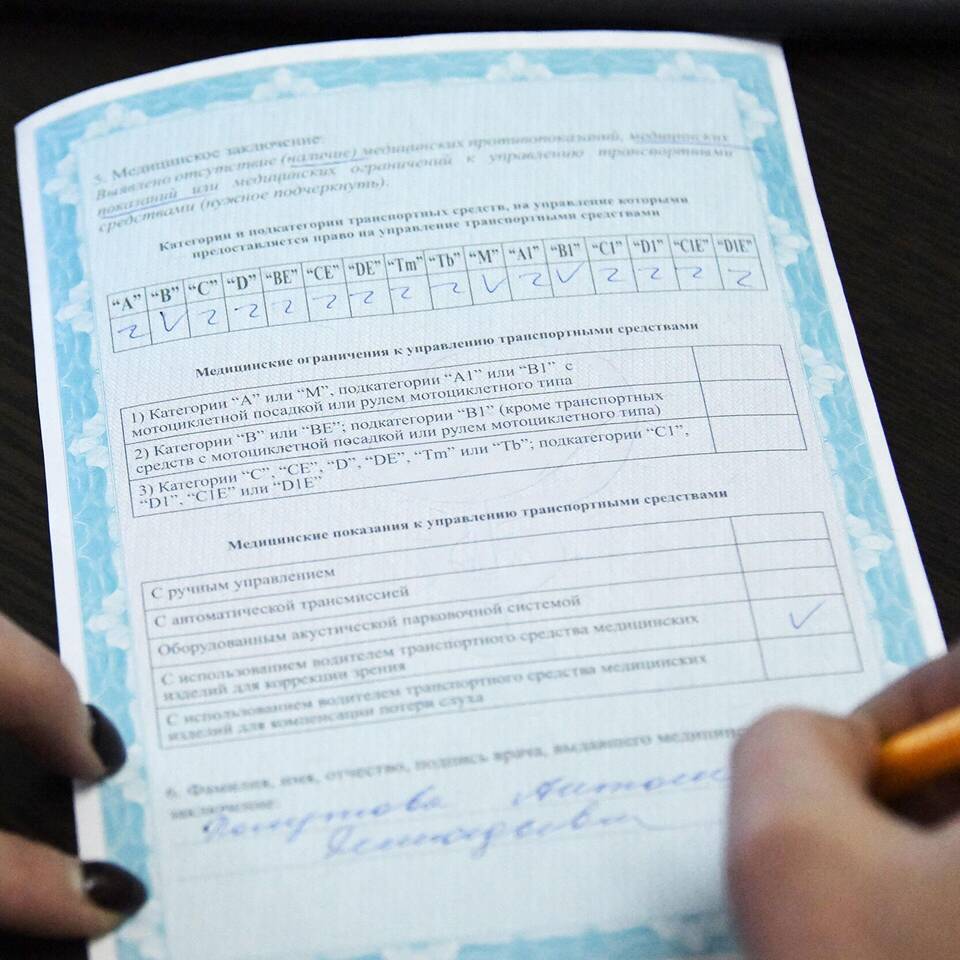 5. Медицинское заключение:
Выявлено отсутствие (наличие) медицинских противопоказаний, медицинских
показаний или медицинских ограничений к управлению транспортными
средствами (нужное подчеркнуть).
Категории и подкатегории транспортных средств, на управление которыми
предоставляется право на управление транспортными средствами
“A” “B” “C” “D” “BE” “CE” “DE” “Tm” “Tb” “M” “A1” “B1” “C1” “D1” “C1E” “D1E”
Медицинские ограничения к управлению транспортными средствами
1) Категории “A” или “M”, подкатегории “A1” или “B1” с
мотоциклетной посадкой или рулем мотоциклетного типа
2) Категории “B” или “BE”; подкатегории “B1” (кроме транспортных
средств с мотоциклетной посадкой или рулем мотоциклетного типа)
3) Категории “C”, “CE”, “D”, “DE”, “Tm” или “Tb”; подкатегории “C1”,
“D1”, “C1E” или “D1E”
Медицинские показания к управлению транспортными средствами
С ручным управлением
С автоматической трансмиссией
Оборудованным акустической парковочной системой
С использованием водителем транспортного средства медицинских
изделий для коррекции зрения
С использованием водителем транспортного средства медицинских
изделий для компенсации потери слуха
6. Фамилия, имя, отчество, подпись врача, выдавшего
заключение: